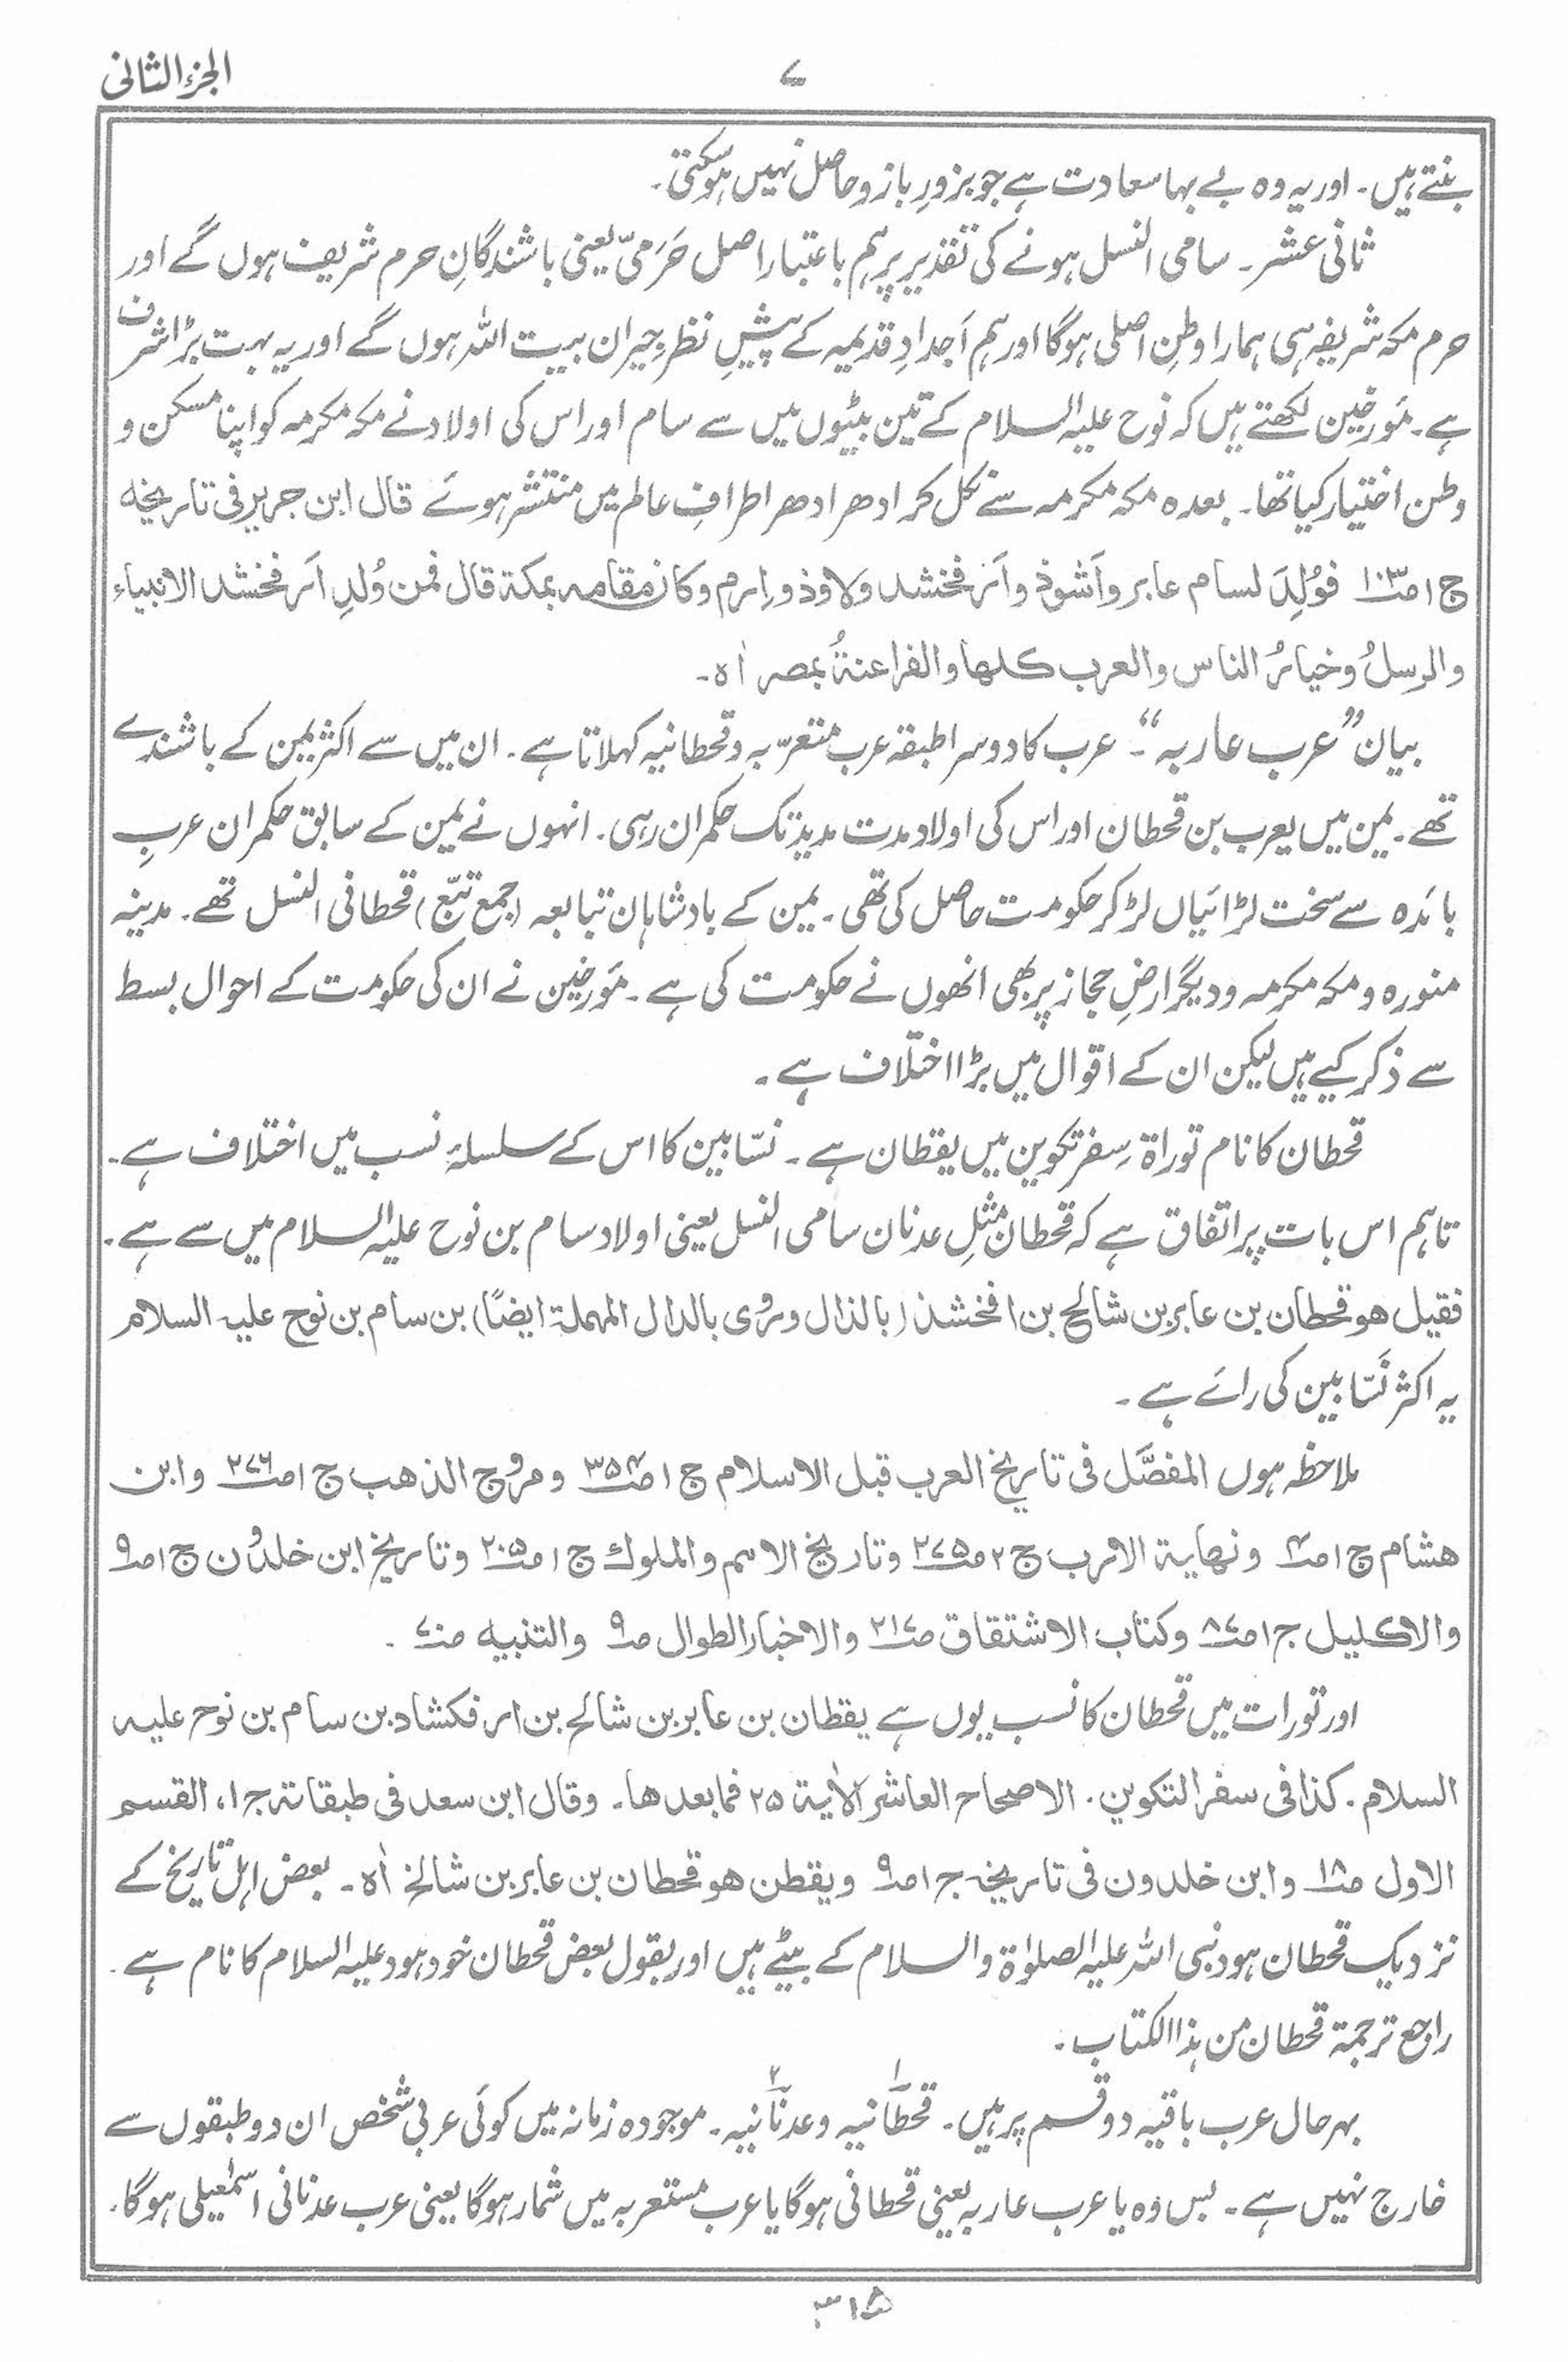 الجزء الثانی
۷
بنتے ہیں۔ اور یہ وہ بے بہا سعادت ہے جو بزورِ بازو حاصل نہیں ہوسکتی۔
ثانی عشر۔ سامی النسل ہونے کی تقدیر پر ہم باعتبار اصل حَرَمیّ یعنی باشندگانِ حرم شریف ہوں گے اور
حرم مکہ شریفہ ہی ہمارا وطنِ اصلی ہوگا اور ہم اَجدادِ قدیمیہ کے پیشِ نظر جیران بیت اللہ ہوں گے اور یہ بہت بڑا شرف
ہے۔ مؤرخین لکھتے ہیں کہ نوح علیہ السلام کے تین بیٹیوں میں سے سام اور اس کی اولاد نے مکہ مکرمہ کو اپنا مسکن و
وطن اختیار کیا تھا۔ بعدہ مکہ مکرمہ سے نکل کر ادھر ادھر اطرافِ عالم میں منتشر ہوئے قال ابن جریر فی تاریخہ
ج ۱ ص۱۰۳ فوُلِدَ لسام عابر واَشوذ واَرفخشد ولاوذ واِرم وکان مقامہ بمکۃ قال فمن وُلدِ اَرفخشد الانبیاء
والرسلُ وخیارُ الناس والعرب کلھا والفراعنۃُ بمصر اٰہ۔
بیان ”عرب عاربہ“۔ عرب کا دوسرا طبقہ عرب متعرّبہ و قحطانیہ کہلاتا ہے۔ ان میں سے اکثر یمن کے باشندے
تھے۔ یمن میں یعرب بن قحطان اور اس کی اولاد مدت مدید تک حکمران رہی۔ انہوں نے یمن کے سابق حکمران عربِ
بائدہ سے سخت لڑائیاں لڑ کر حکومت حاصل کی تھی۔ یمن کے بادشاہان تبابعہ (جمع تبّع) قحطانی النسل تھے۔ مدینہ
منورہ و مکہ مکرمہ و دیگر ارضِ حجاز پر بھی انھوں نے حکومت کی ہے۔ مؤرخین نے ان کی حکومت کے احوال بسط
سے ذکر کیے ہیں لیکن ان کے اقوال میں بڑا اختلاف ہے۔
قحطان کا نام توراۃ، سِفر تکوین میں یقطان ہے۔ نسّابین کا اس کے سلسلۂ نسب میں اختلاف ہے۔
تاہم اس بات پر اتفاق ہے کہ قحطان مثلِ عدنان سامی النسل یعنی اولاد سام بن نوح علیہ السلام میں سے ہے۔
فقیل ھو قحطان بن عابر بن شالخ بن ارفخشذ (بالذال وروی بالدال المہملۃ ایضًا) بن سام بن نوح علیہ السلام
یہ اکثر نَسّابین کی رائے ہے۔
ملاحظہ ہوں المفصَّل فی تاریخ العرب قبل الاسلام ج ۱ ص۳۵۴ و مروج الذھب ج ۱ ص۲۷۶ وابن
ھشام ج ۱ ص۴ ونھایۃ الارب ج ۲ ص۲۷۵ وتاریخ الامم والملوک ج ۱ ص۲۰۵ وتاریخ ابن خلدون ج ۱ ص۹
والاکلیل ج ۱ ص۸۷ وکتاب الاشتقاق ص۲۱۷ والاخبار الطوال ص۹ والتنبیہ ص۷۰۔
اور تورات میں قحطان کا نسب یوں ہے یقطان بن عابر بن شالح بن ارفکشاد بن سام بن نوح علیہ
السلام۔ کذا فی سفر التکوین۔ الاصحاح العاشر الاٰیۃ ۲۵ فما بعدھا۔ وقال ابن سعد فی طبقاتہ ج ۱، القسم
الاول ص۱۸ وابن خلدون فی تاریخہ ج ۱ ص۹ ویقطن ھو قحطان بن عابر بن شالخ اٰہ۔ بعض اہل تاریخ کے
نزدیک قحطان ہود نبی اللہ علیہ الصلوٰۃ والسلام کے بیٹے ہیں اور بقول بعض قحطان خود ہود علیہ السلام کا نام ہے۔
راجع ترجمۃ قحطان من ہذا الکتاب۔
بہرحال عرب باقیہ دو قسم پر ہیں۔ ۱ قحطانیہ و ۲ عدنانیہ۔ موجودہ زمانہ میں کوئی عربی شخص ان دو طبقوں سے
خارج نہیں ہے۔ بس وہ یا عرب عاربہ یعنی قحطانی ہوگا یا عرب مستعربہ میں شمار ہوگا یعنی عرب عدنانی اسمٰعیلی ہوگا۔
۳۱۵